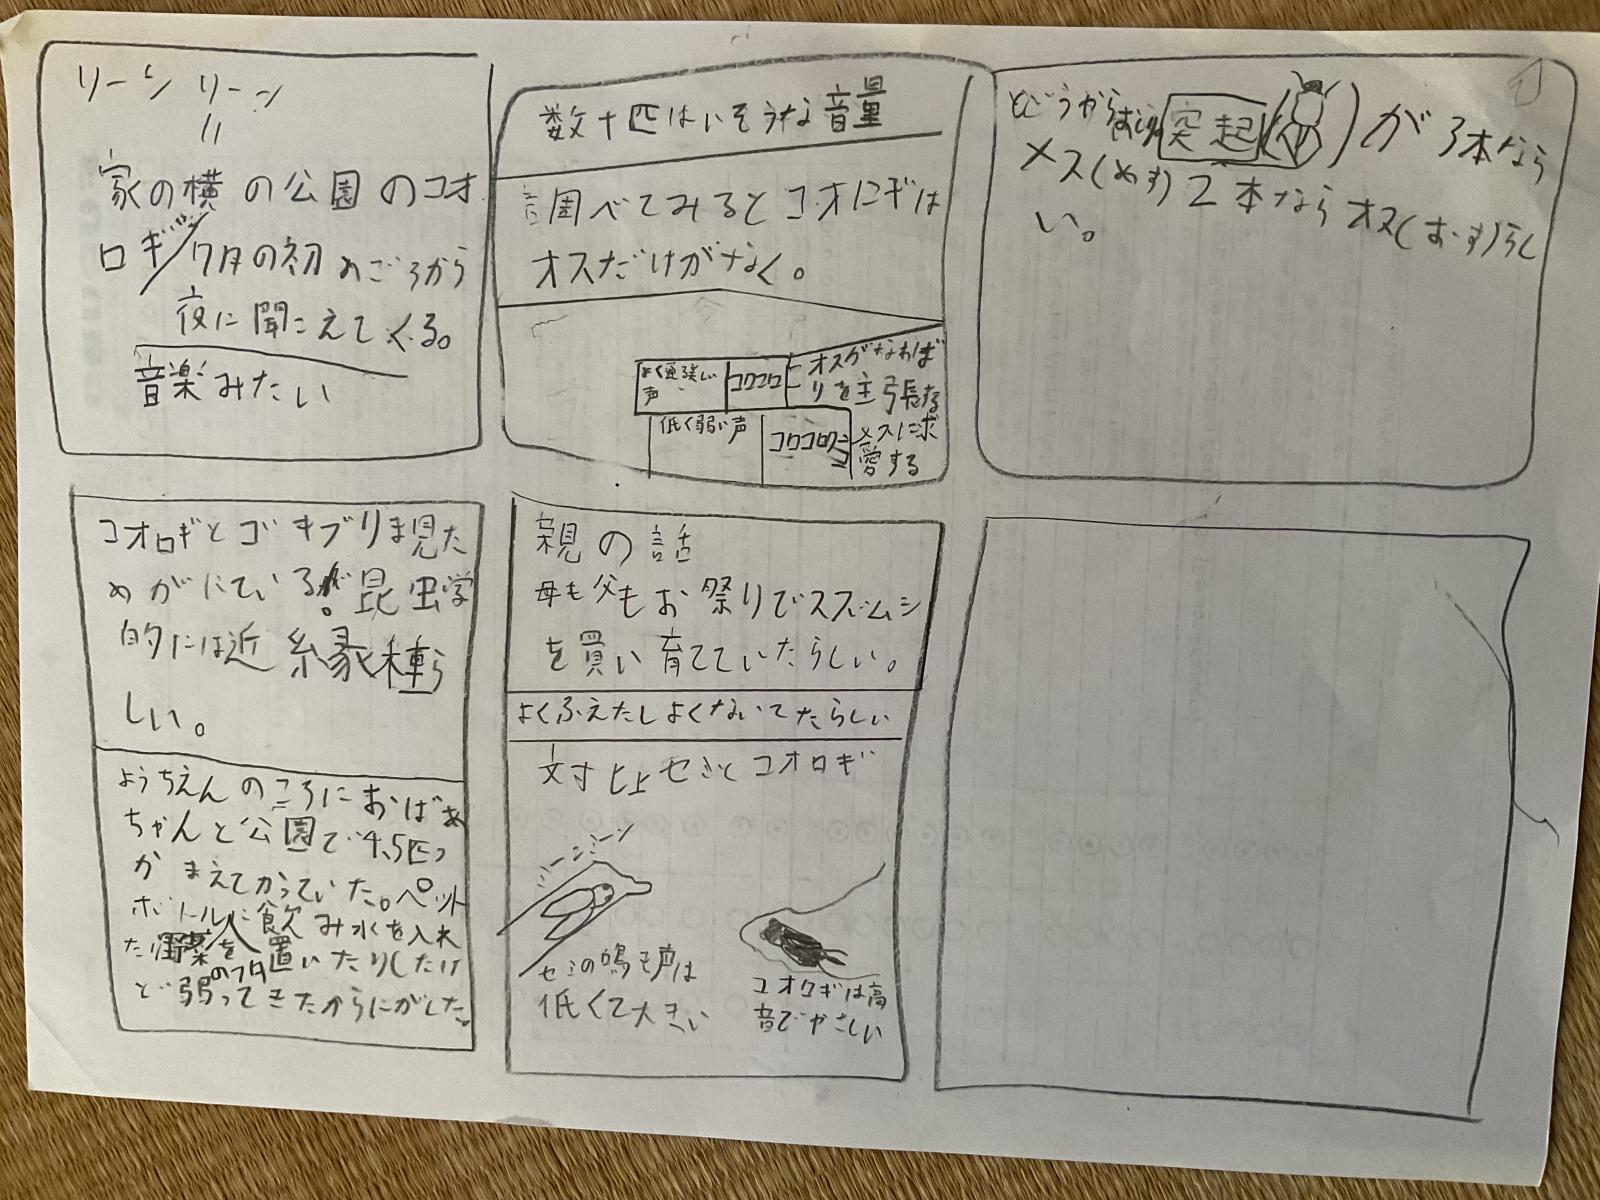 リーン リーン
〃
家の横の公園のコオ
ロギ/夕の初めごろから
夜に聞こえてくる。
音楽みたい
数十匹はいそうな音量
調べてみるとコオロギは
オスだけがなく。
よく強い
声
コロコロ
オスがなわば
りを主張する
低く弱い声
コロコロリーン
メスに求
愛する
突起( )が3本なら
メス(めす)2本ならオス(おす)らし
い。
コオロギとゴキブリは見た
めがにているが。昆虫学
的には近縁種ら
しい。
ようちえんのころにおばあ
ちゃんと公園で4,5匹つ
かまえてかっていた。ペット
ボトルに飲み水を入れ
たを置いたりしたけ
のフタ
ど弱ってきたからにがした。
親の話
母も父もお祭りでスズムシ
を買い育てていたらしい。
よくふえたしよくないてたらしい
対比 セミとコオロギ
ミーンミーン
セミの鳴き声は
低くて大きい
コオロギは高
音でやさしい